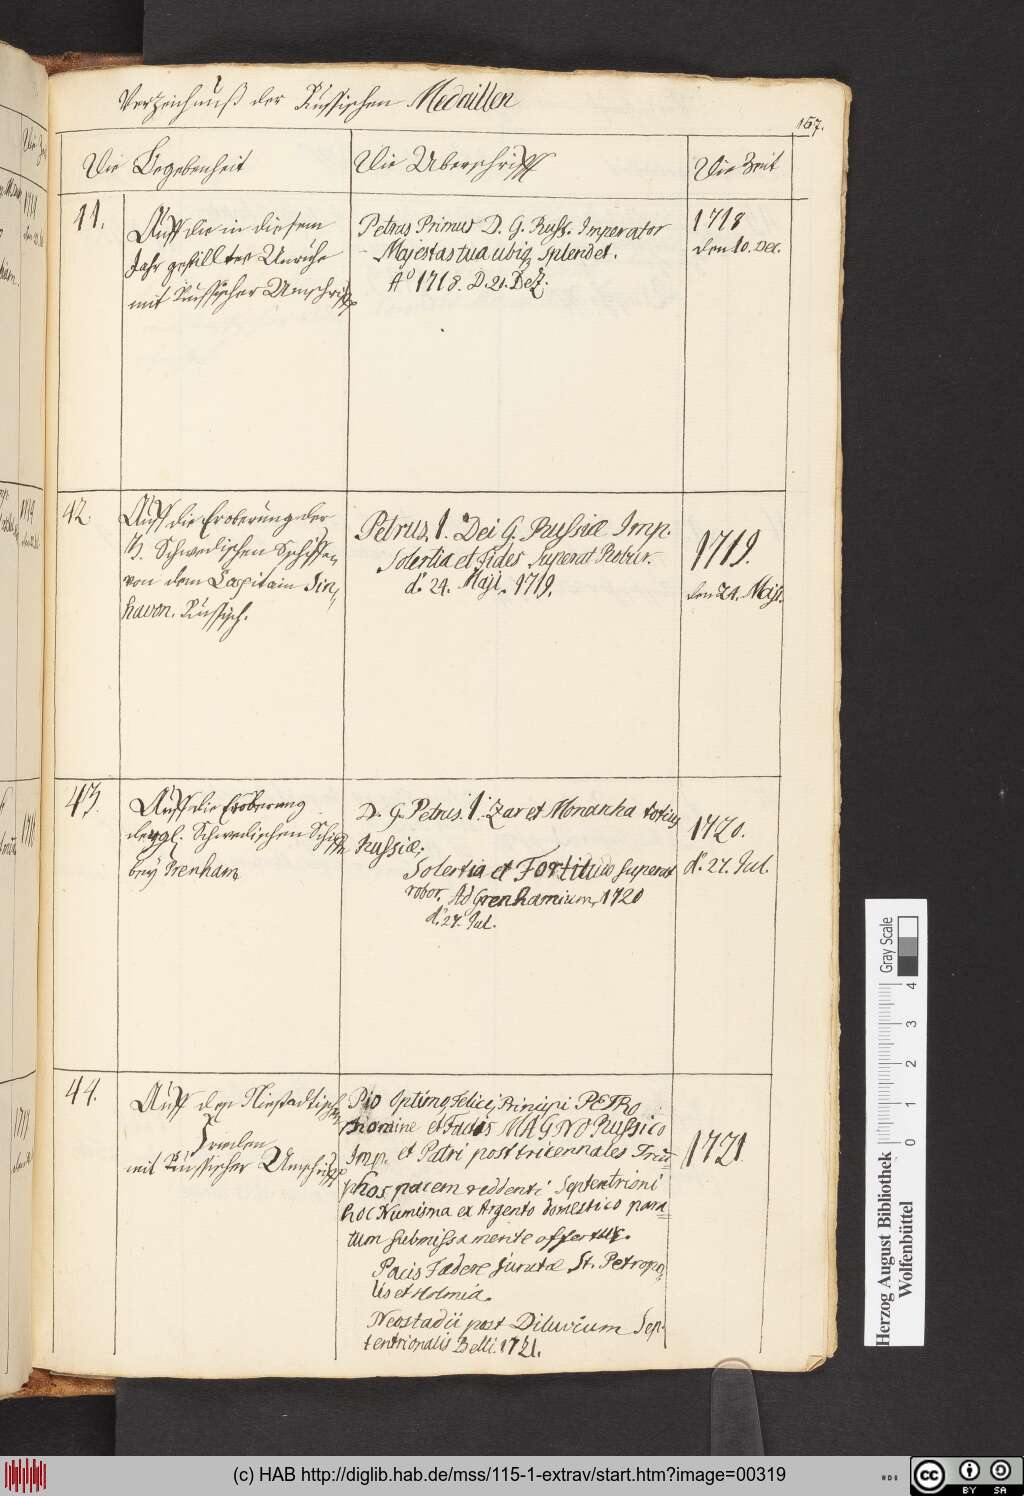 Verzeichnuß der Russischen Medaillen
167.
Die Begebenheit
Die Überschrifft
Die Zeit
41.
Auff die in diesem
Jahr gestillter Unruhe
mit Russischer Umschrifft
Petrus Primus D. G. Russ. Imperator
Majestas tua ubiq splendet.
Aº 1718. D. 21. Dec.
1718
den 10. Dec.
42.
Auff die Eroberung der
3. Schwedischen Schiffen
von dem Capitain Sin-
havon. Russisch.
Petrus. I. Dei G. Russiæ Imp.
Solertia et Fides Superat Robur.
d. 24. Maji. 1719.
1719.
den 24. Maji.
43.
Auff die Eroberung
dergl. Schwedischen Schiffe
bey Grenham
D. G. Petrus. I. Zar et Monarcha totius
Russiæ.
Solertia et Fortitudo superat
robor. Ad Grenhamium, 1720
d. 27. Jul.
1720.
d. 27. Jul.
44.
Auff den Niestadtischen
Frieden
mit Russischer Umschrifft
Pio Optimo, Felici, Principi PETRo
Nomine et Factis MAGNO Russico
Imp. et Patri post tricennales Trium-
phos pacem reddenti Septentrioni
hoc Numisma ex Argento domestico para-
tum submissa mente offertur.
Pacis Fœdere juncta St. Petropo-
lis et Holmia.
Neostadii post Diluvium Sep-
tentrionalis Belli. 1721.
1721
Gray Scale
0 1 2 3 4
Herzog August Bibliothek
Wolfenbüttel
(c) HAB http://diglib.hab.de/mss/115-1-extrav/start.htm?image=00319
cc BY SA